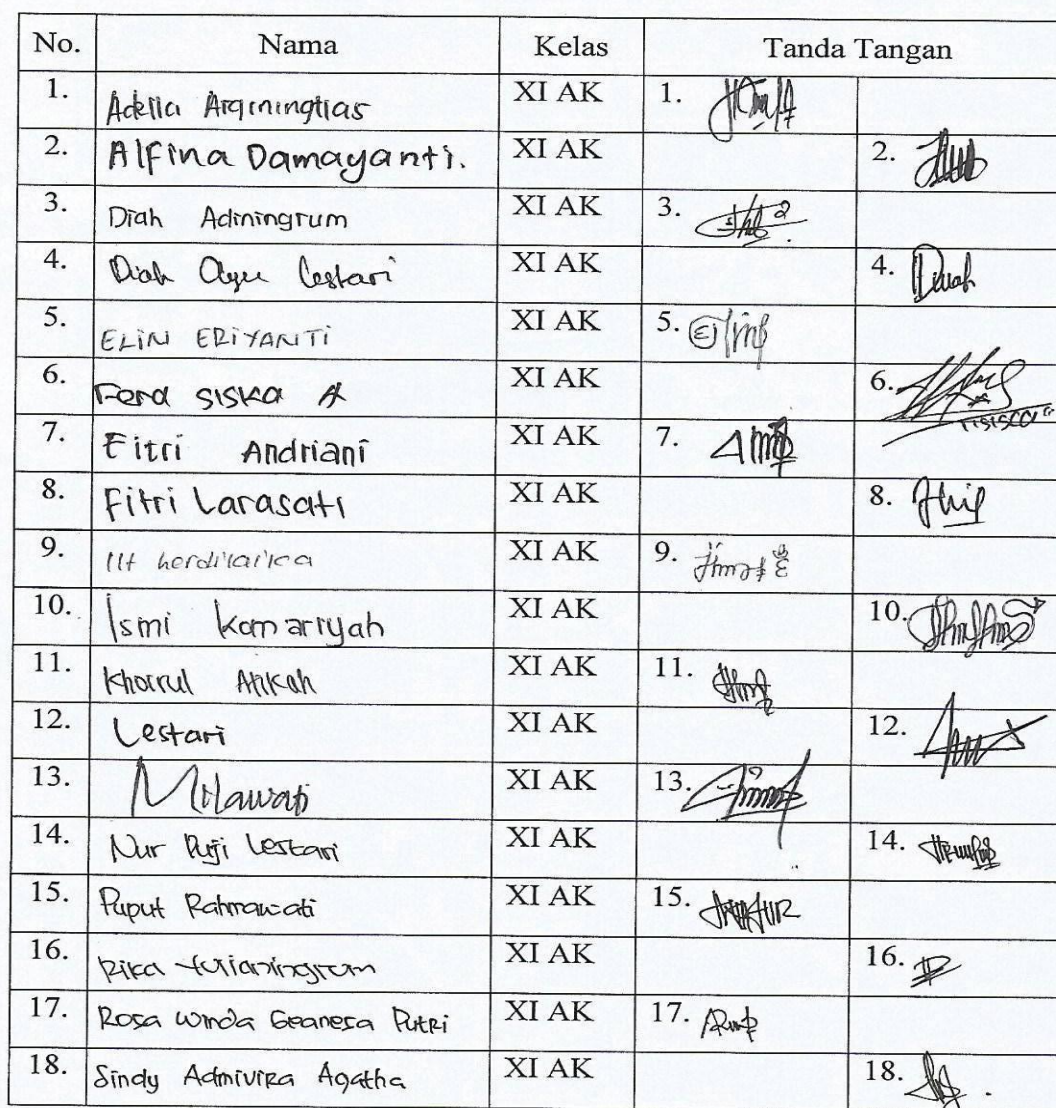 No. Nama Kelas Tanda Tangan
1. Adella Argininingtias XI AK 1.
2. Alfina Damayanti. XI AK 2.
3. Diah Adiningrum XI AK 3.
4. Diah Ayu Lestari XI AK 4. Diah
5. ELIN ERIYANTI XI AK 5.
6. Fera SISKA A XI AK 6.
7. Fitri Andriani XI AK 7.
8. Fitri Larasati XI AK 8.
9. XI AK 9.
10. Ismi Komariyah XI AK 10.
11. Khoirul Atikah XI AK 11.
12. Lestari XI AK 12.
13. XI AK 13.
14. Nur Puji Lestari XI AK 14.
15. Puput Rahmawati XI AK 15.
16. Rika Yulianingrum XI AK 16.
17. Rosa Winda Geanesa Putri XI AK 17.
18. Sindy Admivira Agatha XI AK 18.